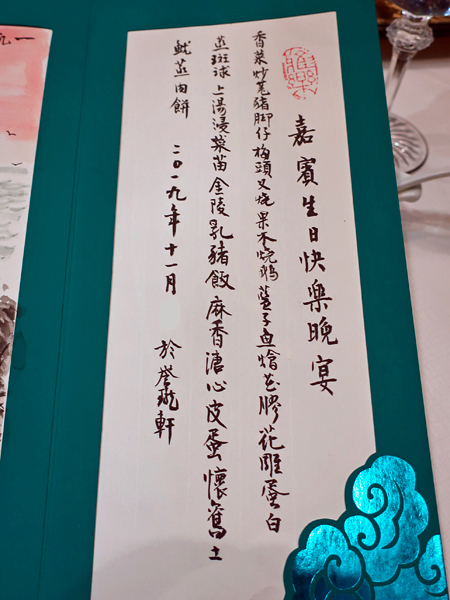 嘉賓生日快樂晚宴
香菜炒豬脚仔梅頭叉燒果木燒鵝子血燴花膠花雕蛋白
蒸斑球上湯浸菜苗金陵乳豬飯麻香溏心皮蛋懷舊土
魷蒸肉餅 二〇一九年十一月
於譽瓏軒